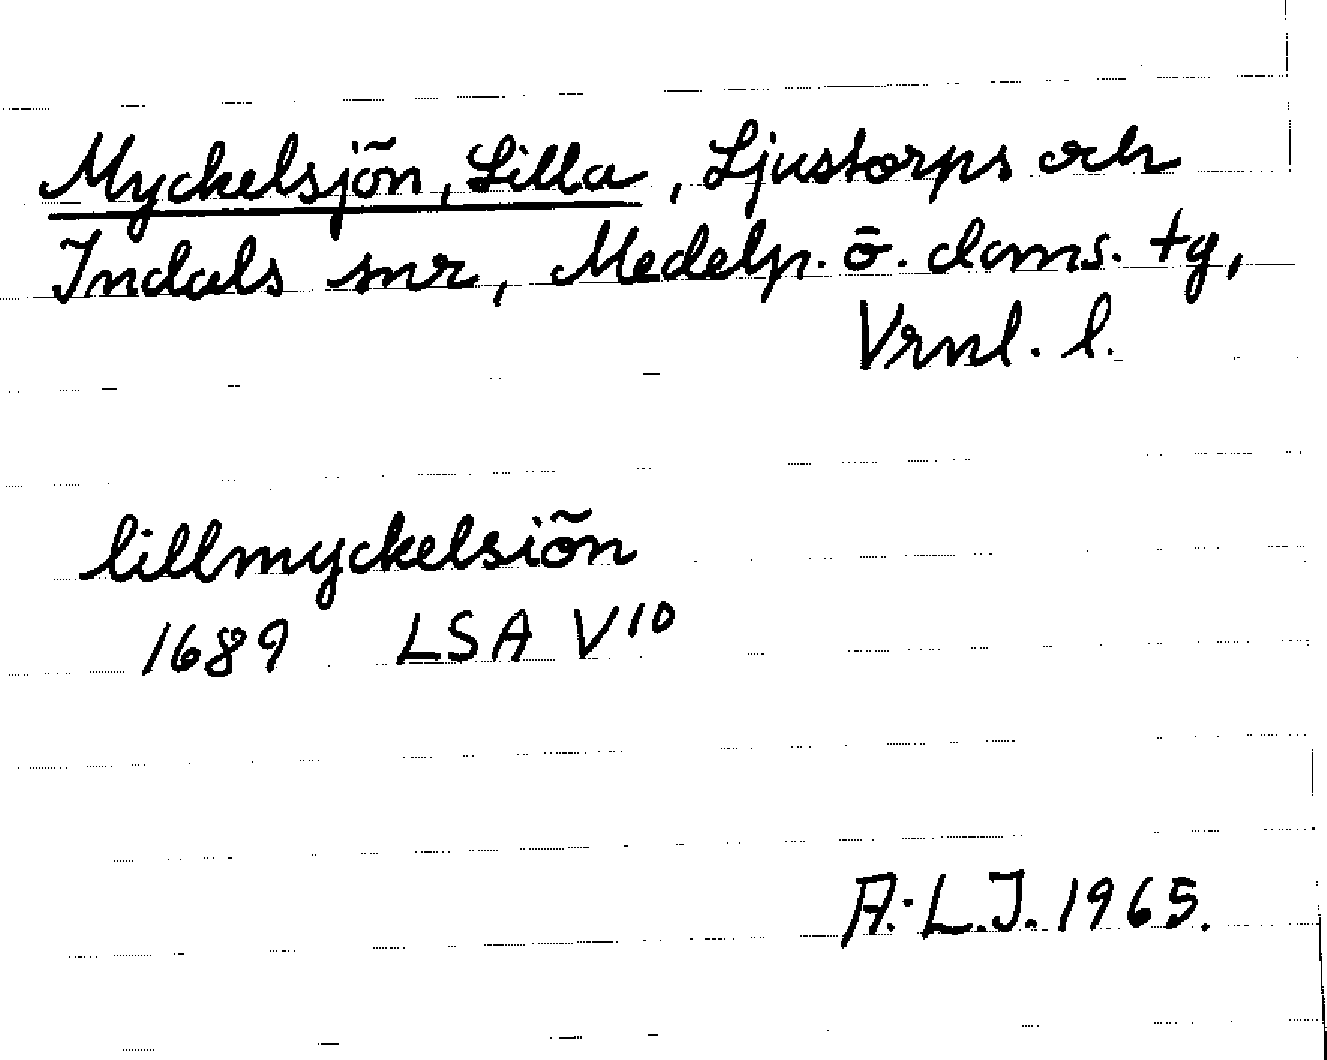 Myckelsjön, Lilla, Ljustorps och
Indals snr, Medelp. ö. doms. tg,
Vrnl. l.
lillmyckelsiön
1689 LSA V¹⁰
A.-L.J. 1965.